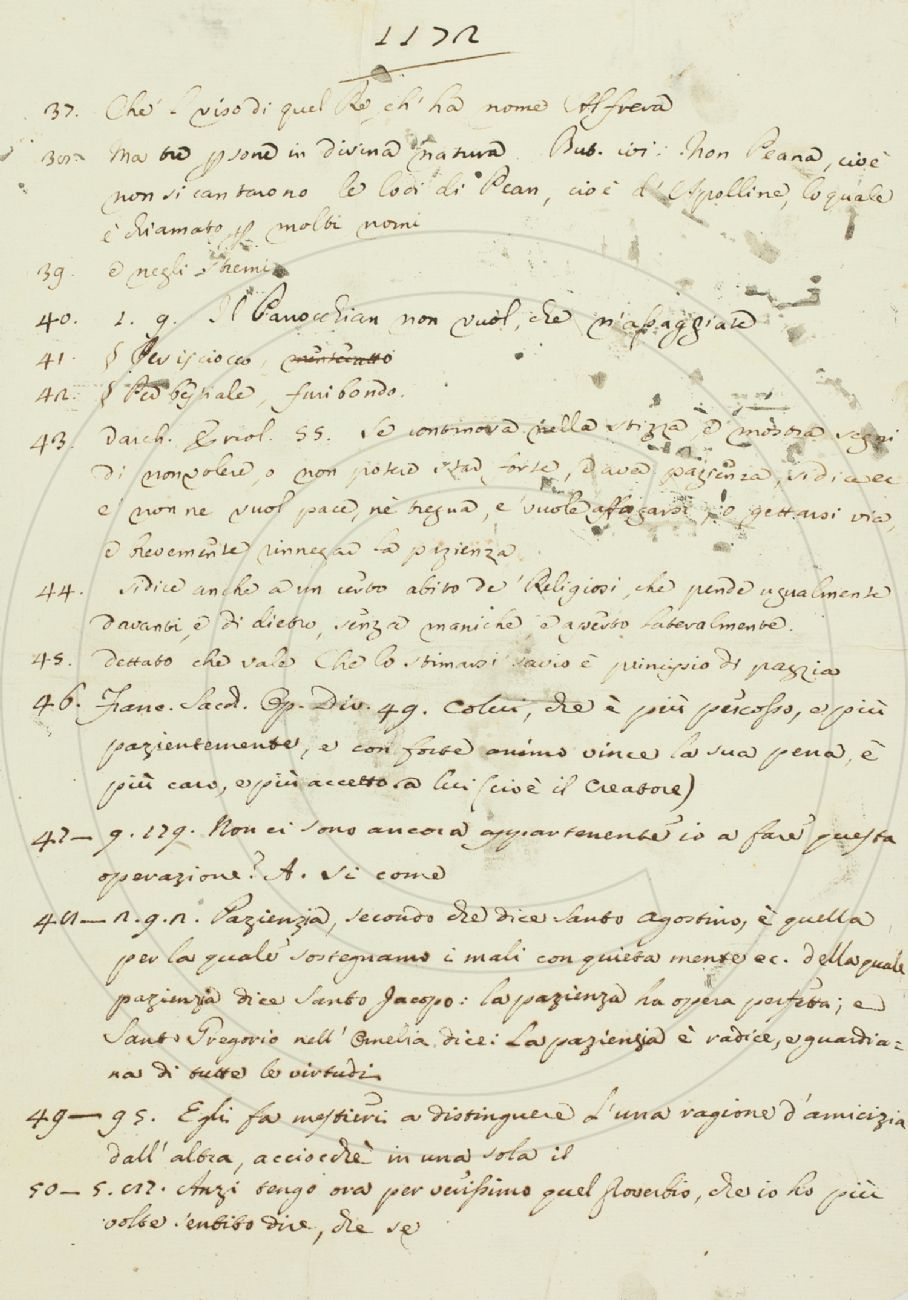 1172
37. Che 'l viso di quel Re, ch' ha nome Affrera
38. Ma tre psone in divina natura. But. ivi: Non Peana, cioè
non si cantarono le lodi di Pean, cioè d'Apolline, lo quale
è chiamato p molti nomi
39. e negli stremi
40. 1. 9. Il Panocchian non vuol, che n'assaggiate
41. § Per isciocco,
42. § Per bestiale, furibondo.
43. Varch. Ercol. 55. Se continova nella stizza, e mostra segni
di non volere, o non potere star forte, e aver pazienza, si dice ec
e' non ne vuol pace, nè tregua, e' vuole affogarsi, o gettarsi via,
e brevemente rinnegar la pazienza
44. Si dice anche a un certo abito de' Religiosi, che pende ugualmente
davanti, e di dietro, senza maniche e aperto lateralmente.
45. dettato che vale Che lo stimarsi savio è principio di pazzia
46. Franc. Sacch. Op. Div. 49. Colui, che è più percosso, e più
pazientemente, e con forte animo vince la sua pena, è
più caro, e più accetto a lui (cioè il Creatore)
47— 9. 129. Non ci sono ancora appartenente io a fare questa
operazione? A. Si come
48— 2. 9. 2. Pazienzia, secondo che dice Santo Agostino, è quella
per la quale sostegnamo i mali con quieta mente ec. della quale
pazienzia dice Santo Jacopo: la pazienza ha opera perfetta; e
Santo Gregorio nell' Omelia dice: La pazienzia è radice, e guardia=
na di tutte le virtudi
49— 95. Egli fa mestieri a distinguere l'una ragione d'amicizia
dall' altra, acciocchè in una sola il
50— 5. Anzi tengo ora per verissimo quel proverbio, che io ho più
volte sentito dire, che se